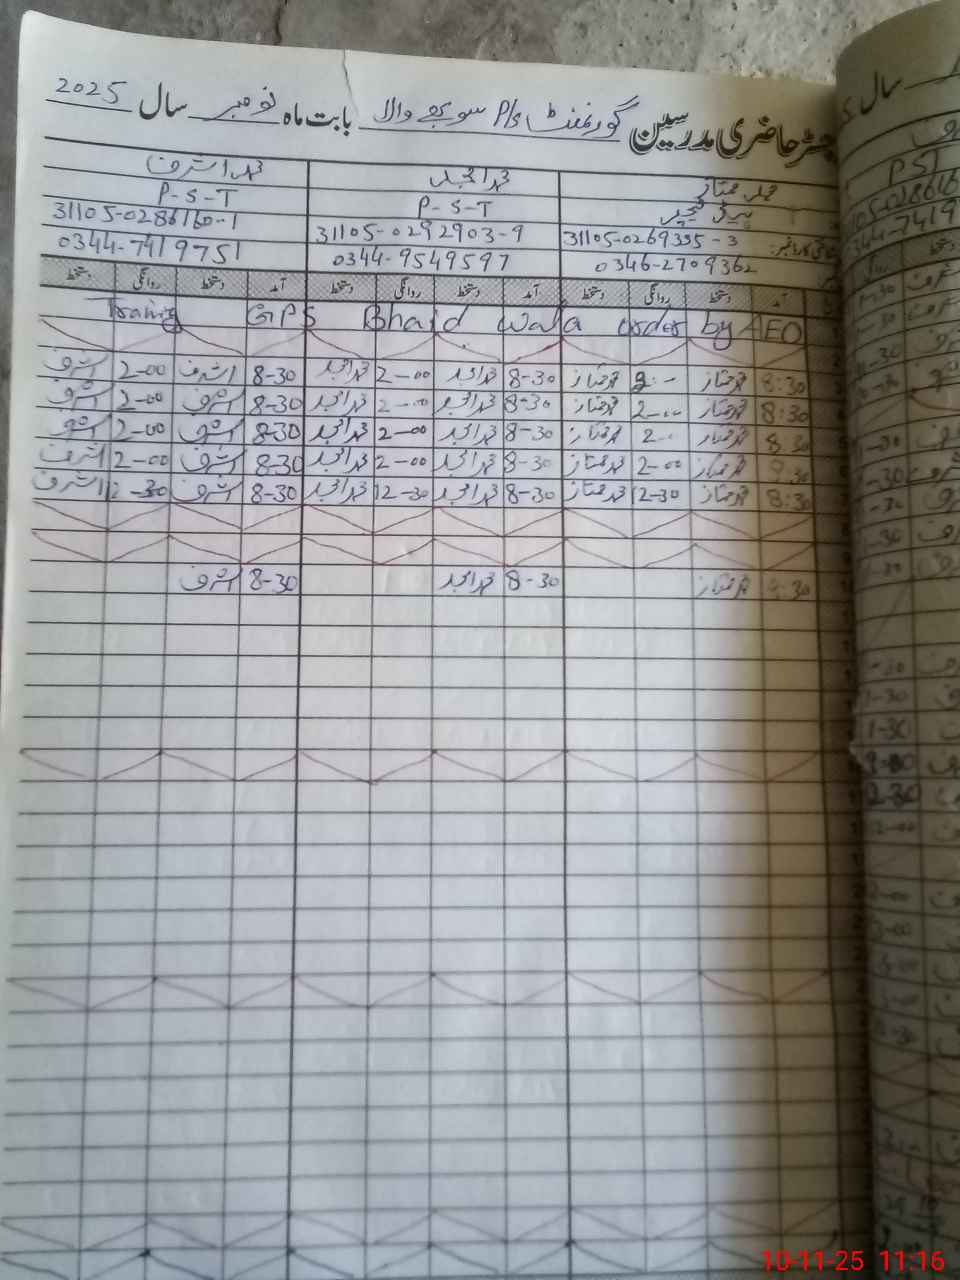 رجسٹر حاضری مدرسین گورنمنٹ P/s سوبھے والا بابت ماہ نومبر سال 2025
محمد ممتاز محمد امجد محمد اشرف
ہیڈ ٹیچر P-S-T P-S-T
31105-0269395-3 31105-0292903-9 31105-0286160-1
0346-2709362 0344-9549597 0344-7419751
آمد دستخط روانگی دستخط آمد دستخط روانگی دستخط آمد دستخط روانگی دستخط
Traning GPS Bhaid wala order by AEO
8:30 محمد ممتاز 2:- محمد ممتاز 8-30 محمد امجد 2-00 محمد امجد 8-30 اشرف 2-00 اشرف
8:30 محمد ممتاز 2-00 محمد ممتاز 8-30 محمد امجد 2-00 محمد امجد 8-30 اشرف 2-00 اشرف
8:30 محمد ممتاز 2-- محمد ممتاز 8-30 محمد امجد 2-00 محمد امجد 8-30 اشرف 2-00 اشرف
8:30 محمد ممتاز 2-00 محمد ممتاز 8-30 محمد امجد 2-00 محمد امجد 8-30 اشرف 2-00 اشرف
8:30 محمد ممتاز 12-30 محمد ممتاز 8-30 محمد امجد 12-30 محمد امجد 8-30 اشرف 12-30 اشرف
8:30 محمد ممتاز 8-30 محمد امجد 8-30 اشرف
10-11-25 11:16